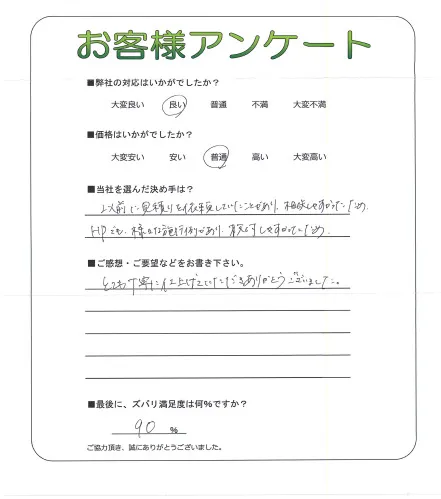 お客様アンケート
■弊社の対応はいかがでしたか？
大変良い 良い 普通 不満 大変不満
■価格はいかがでしたか？
大変安い 安い 普通 高い 大変高い
■当社を選んだ決め手は？
以前に見積りを依頼していたことがあり、相談しやすかったため。
HPでも、様々な施行例があり、検討しやすかったため。
■ご感想・ご要望などをお書き下さい。
とても丁寧に仕上げていただきありがとうございました。
■最後に、ズバリ満足度は何％ですか？
90 ％
ご協力頂き、誠にありがとうございました。